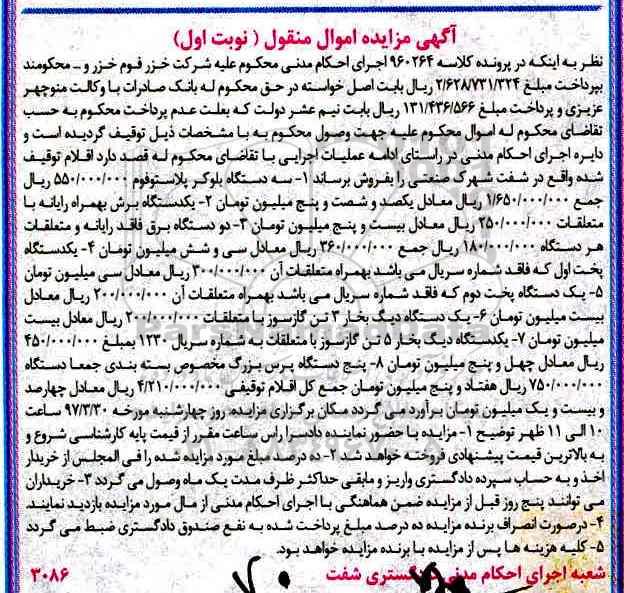 آگهی مزایده اموال منقول ( نوبت اول)
نظر به اینکه در پرونده کلاسه ۹۶۰۲۶۴ اجرای احکام مدنی محکوم علیه شرکت خزر فوم خزر و ــ محکومند
بپرداخت مبلغ ۲/۶۲۸/۷۳۱/۳۲۴ ریال بابت اصل خواسته در حق محکوم له بانک صادرات با وکالت منوچهر
عزیزی و پرداخت مبلغ ۱۳۱/۴۳۶/۵۶۶ ریال بابت نیم عشر دولت که بعلت عدم پرداخت محکوم به حسب
تقاضای محکوم له اموال محکوم علیه جهت وصول محکوم به با مشخصات ذیل توقیف گردیده است و
دایره اجرای احکام مدنی در راستای ادامه عملیات اجرایی با تقاضای محکوم له قصد دارد اقلام توقیف
شده واقع در شفت شهرک صنعتی را بفروش برساند ۱- سه دستگاه بلوکر پلاستوفوم ۵۵۰/۰۰۰/۰۰۰ ریال
جمع ۱/۶۵۰/۰۰۰/۰۰۰ ریال معادل یکصد و شصت و پنج میلیون تومان ۲- یکدستگاه برش بهمراه رایانه با
متعلقات ۲۵۰/۰۰۰/۰۰۰ ریال معادل بیست و پنج میلیون تومان ۳- دو دستگاه برق فاقد رایانه و متعلقات
هر دستگاه ۱۸۰/۰۰۰/۰۰۰ ریال جمع ۳۶۰/۰۰۰/۰۰۰ معادل سی و شش میلیون تومان ۴- یکدستگاه
پخت اول که فاقد شماره سریال می باشد بهمراه متعلقات آن ۳۰۰/۰۰۰/۰۰۰ ریال معادل سی میلیون تومان
۵- یک دستگاه پخت دوم که فاقد شماره سریال می باشد بهمراه متعلقات آن ۲۰۰/۰۰۰/۰۰۰ ریال معادل
بیست میلیون تومان ۶- یک دستگاه دیگ بخار ۳ تن گازسوز با متعلقات ۲۰۰/۰۰۰/۰۰۰ ریال معادل بیست
میلیون تومان ۷- یکدستگاه دیگ بخار ۵ تن گازسوز با متعلقات به شماره سریال ۱۲۳۰ بمبلغ ۴۵۰/۰۰۰/۰۰۰
ریال معادل چهل و پنج میلیون تومان ۸- پنج دستگاه پرس بزرگ مخصوص بسته بندی جمعا دستگاه
۷۵۰/۰۰۰/۰۰۰ ریال هفتاد و پنج میلیون تومان جمع کل اقلام توقیفی ۴/۲۱۰/۰۰۰/۰۰۰ ریال معادل چهارصد
و بیست و یک میلیون تومان برآورد می گردد مکان برگزاری مزایده روز چهارشنبه مورخه ۹۷/۳/۳۰ ساعت
۱۰ الی ۱۱ ظهر توضیح ۱- مزایده با حضور نماینده دادسرا راس ساعت مقرر از قیمت پایه کارشناسی شروع و
به بالاترین قیمت پیشنهادی فروخته خواهد شد ۲- ده درصد مبلغ مورد مزایده شده را فی المجلس از خریدار
اخذ و به حساب سپرده دادگستری واریز و مابقی حداکثر ظرف مدت یک ماه وصول می گردد ۳- خریداران
می توانند پنج روز قبل از مزایده ضمن هماهنگی با اجرای احکام مدنی از مال مورد مزایده بازدید نمایند
۴- درصورت انصراف برنده مزایده ده درصد مبلغ پرداخت شده به نفع صندوق دادگستری ضبط می گردد
۵- کلیه هزینه ها پس از مزایده با برنده مزایده خواهد بود.
شعبه اجرای احکام مدنی دادگستری شفت ۳۰۸۶